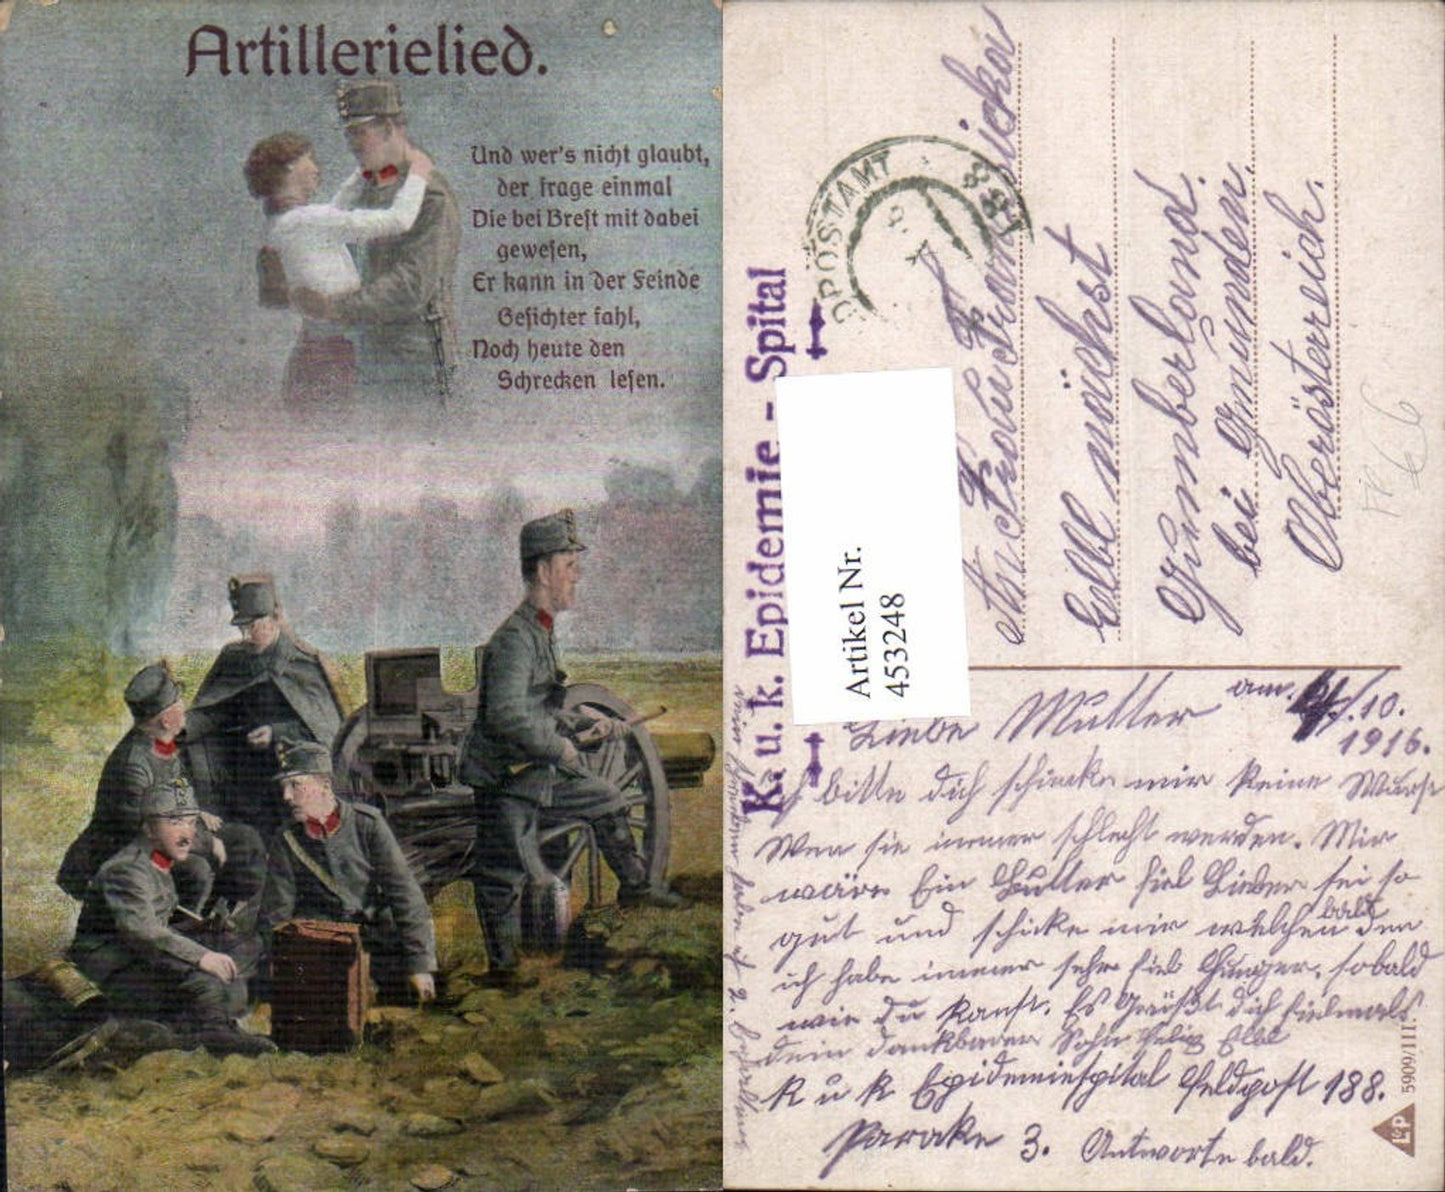 Artillerielied.
Und wer's nicht glaubt,
der frage einmal
Die bei Brest mit dabei
gewesen,
Er kann in der Feinde
Gesichter fahl,
Noch heute den
Schrecken lesen.
K. u. k. Epidemie - Spital
Artikel Nr.
453248
POSTAMT
188
An Frau
Ebll
bei Gmunden.
Oberösterreich.
PR 66
Liebe Mutter am. /.10.
1916.
Ich bitte dich schicke mir keine Wurst
Wen sie immer schlecht werden. Mir
wäre Ein Butter fiel Lieber sei so
gut und schicke mir welchen bald den
ich habe immer sehr fiel Hunger. sobald
wie du kanst. Es Grüßt dich fielmals
dein dankbarer Sohn
K u K Epidemiespital Feldpost 188.
Parake 3. Antworte bald.
5909/III.
L&P